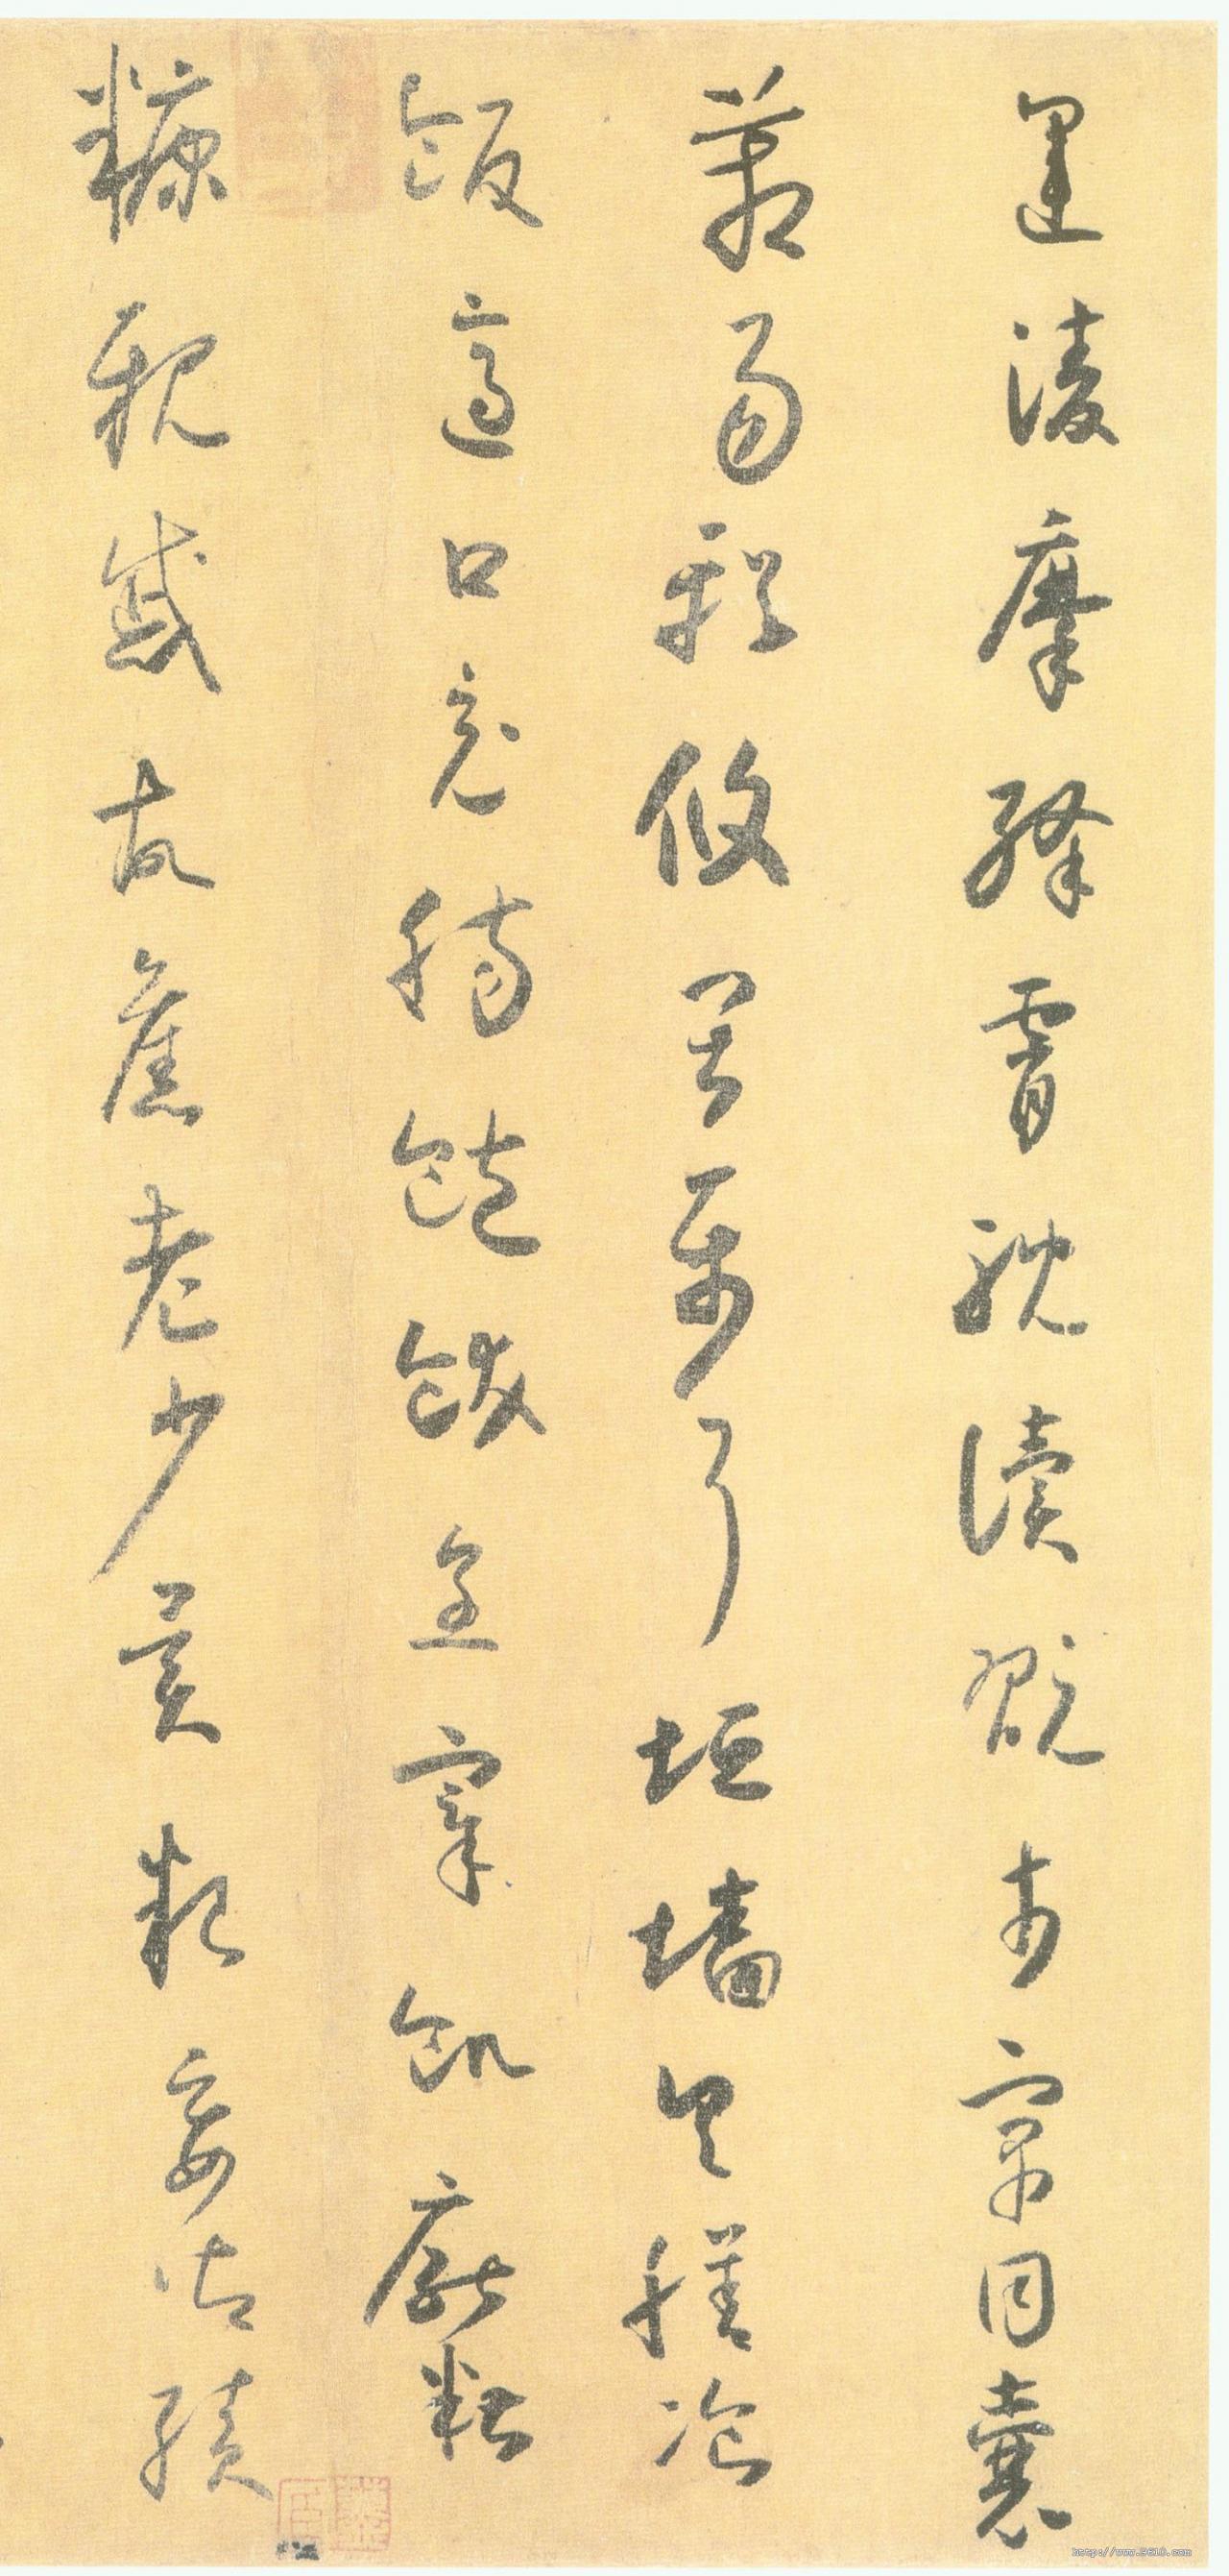 運凌摩絳霄耽讀翫市寓目囊
箱易輶攸畏屬耳垣墻具膳飡
飯適口充腸飽飫烹宰飢厭糟
糠親戚故舊老少異糧妾御績
http://www.9610.com